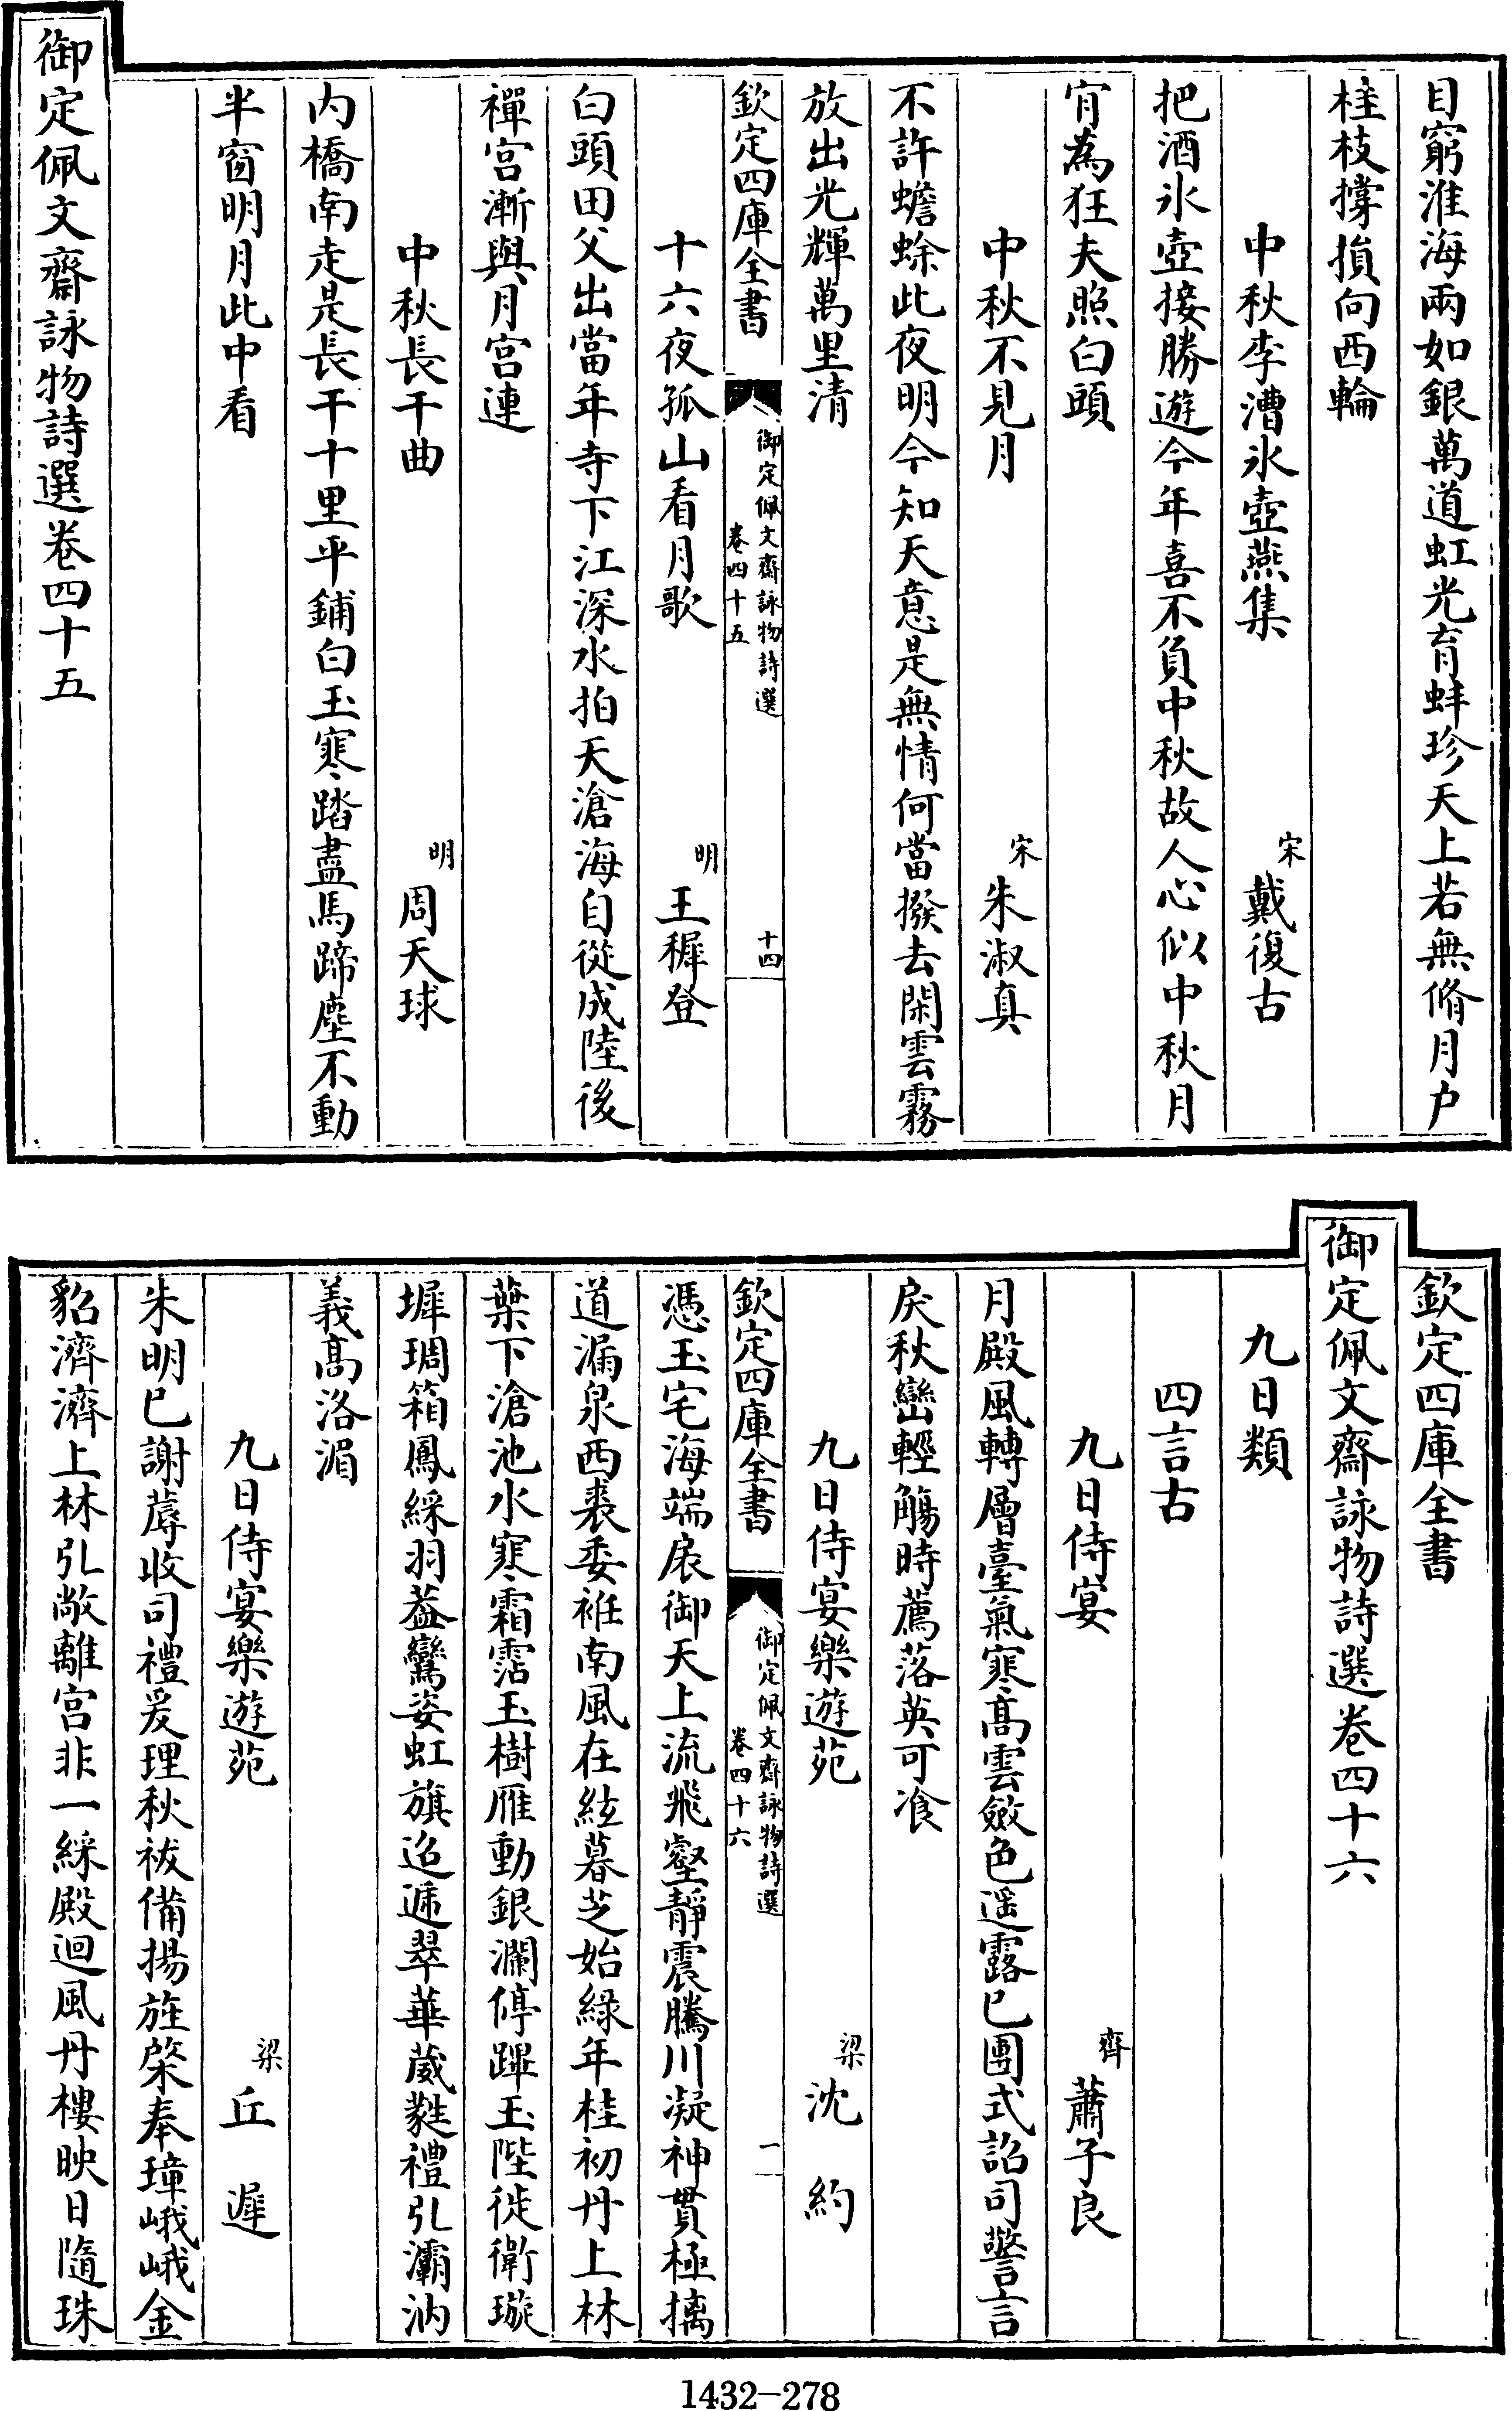 目窮淮海兩如銀萬道虹光育蚌珍天上若無脩月户
桂枝撐損向西輪
中秋李漕氷壺燕集
宋
戴復古
把酒氷壺接勝遊今年喜不負中秋故人心似中秋月
肯為狂夫照白頭
中秋不見月
宋
朱淑真
不許蟾蜍此夜明今知天意是無情何當撥去閑雲霧
放出光輝萬里清
欽定四庫全書
御定佩文齋詠物詩選
卷四十五
十四
十六夜孤山看月歌
明
王穉登
白頭田父出當年寺下江深水拍天滄海自從成陸後
禪宫漸與月宫連
中秋長干曲
明
周天球
内橋南走是長干十里平鋪白玉寒踏盡馬蹄塵不動
半窗明月此中看
御定佩文齋詠物詩選卷四十五
欽定四庫全書
御定佩文齋詠物詩選卷四十六
九日類
四言古
九日侍宴
齊
蕭子良
月殿風轉層臺氣寒髙雲斂色遥露已團式詔司警言
戾秋巒輕觴時薦落英可飡
九日侍宴樂遊苑
梁
沈約
欽定四庫全書
御定佩文齋詠物詩選
卷四十六
一
憑玉宅海端扆御天上流飛壑靜震騰川凝神貫極摛
道漏泉西裘委袵南風在絃暮芝始綠年桂初丹上林
葉下滄池水寒霜霑玉樹雁動銀瀾停蹕玉陛徙衛璇
墀琱箱鳳綵羽葢鸞姿虹旗迢遞翠華葳蕤禮引灞汭
義髙洛湄
九日侍宴樂遊苑
梁
丘遲
朱明已謝蓐收司禮爰理秋祓備揚旌棨奉璋峨峨金
貂濟濟上林弘敞離宫非一綵殿迴風丹樓映日隨珠
1432-278